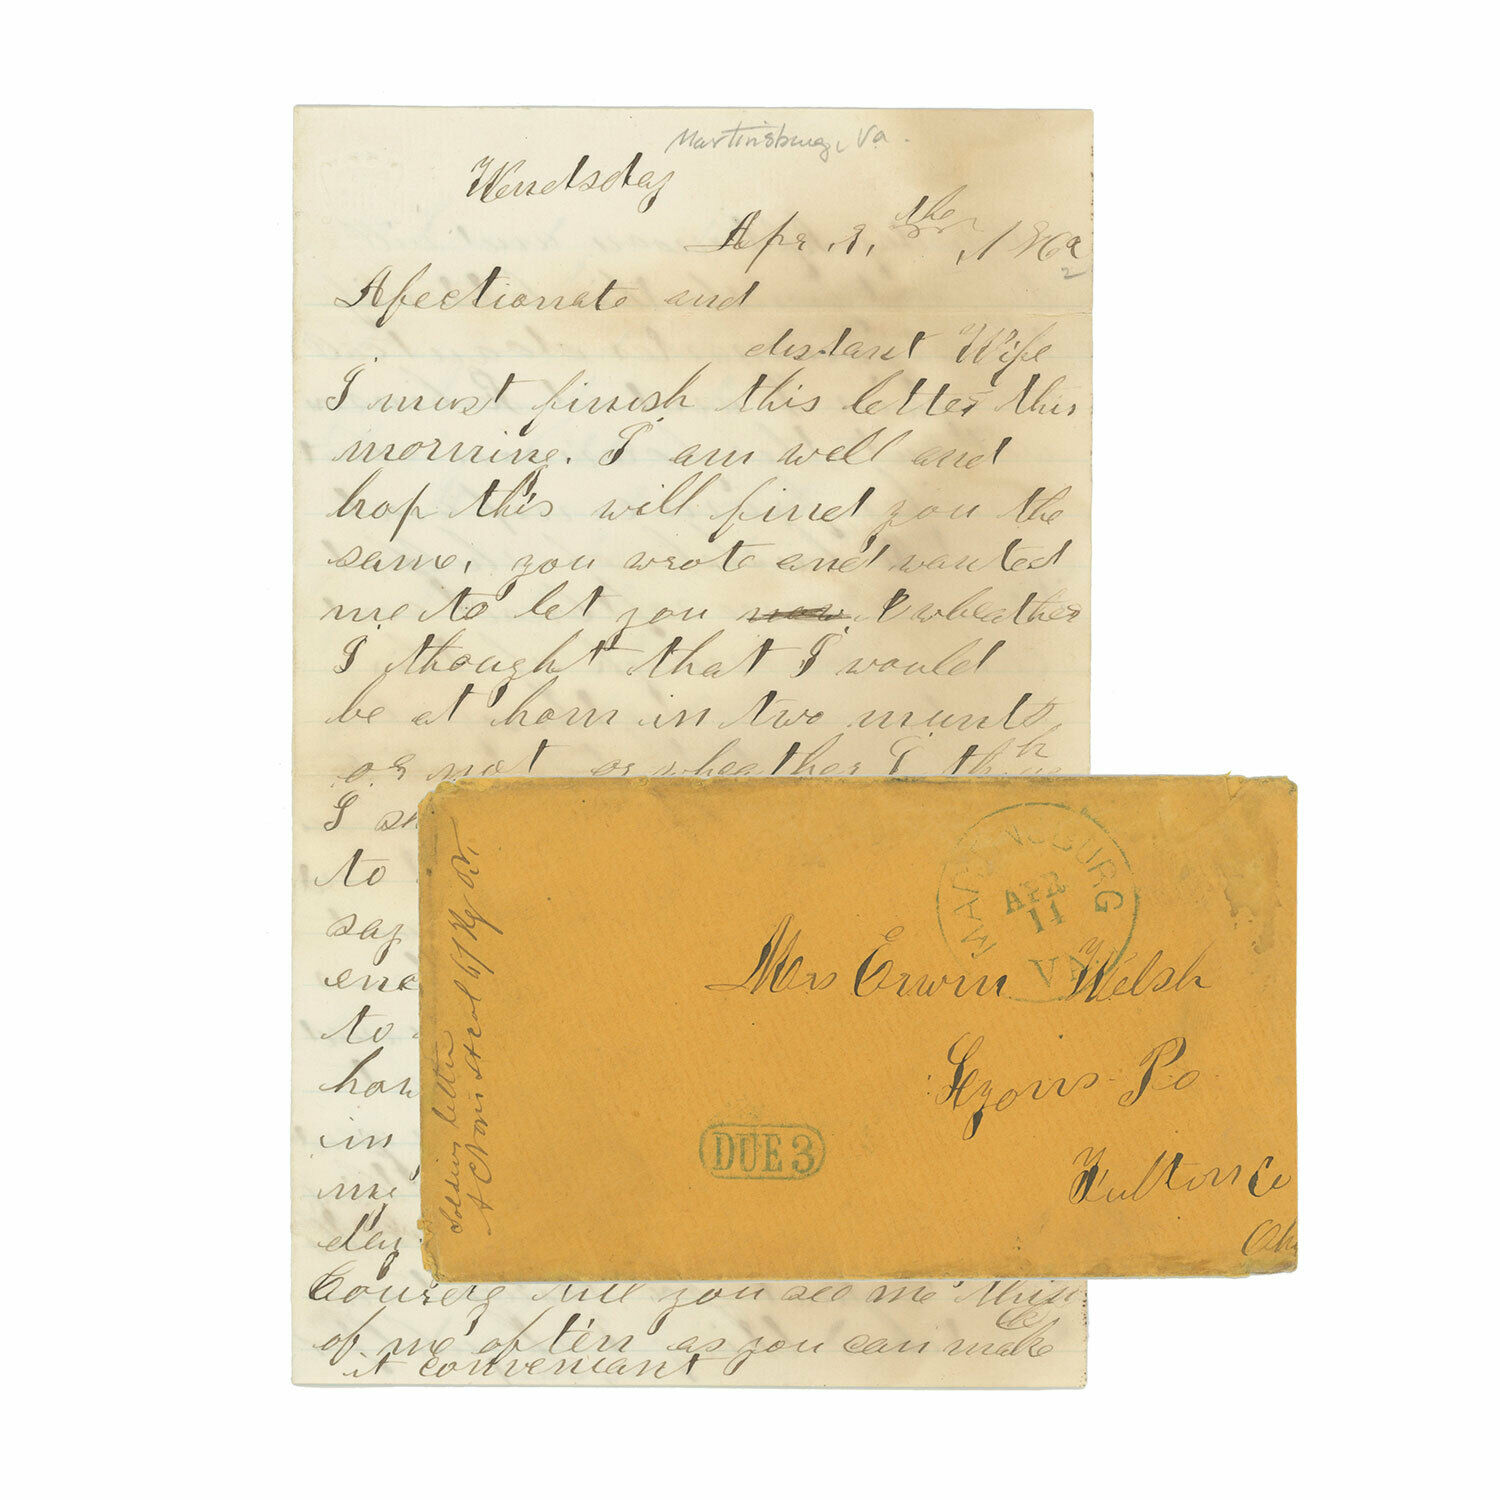 Martinsburg, Va.
Wendsday
Apr, 9, the, 1862
Afectionate and
distant Wife
I must finish this letter this
morning. I am well and
hop this will find you the
same, you wrote and wanted
me to let you now wheather
I thought that I would
be at hom in two munts
or not or wheather I think
I
to
say
to
in
my
Courag till you see me think
of me often as you can make
it conveniant
MARTINSBURG
APR
11
VA.
Mrs Erwin Welsh
Lyons Po
Fulton Co
DUE 3
Soldiers letter
67 Reg O.V.